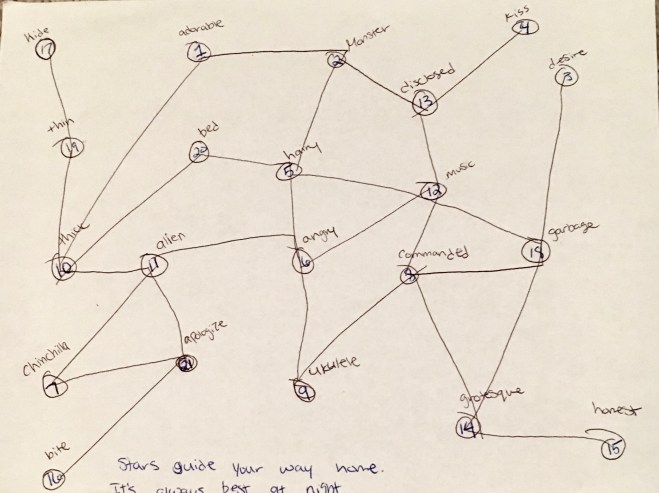 Kiss
4
Hide
17
adorable
1
Monster
2
desire
3
disclosed
13
thin
19
bed
20
hairy
5
music
12
thick
10
alien
11
angry
6
commanded
8
garbage
18
Chinchilla
7
apologize
21
Ukulele
9
grotesque
14
honest
15
bite
16
Stars guide your way home.
It's always best at night